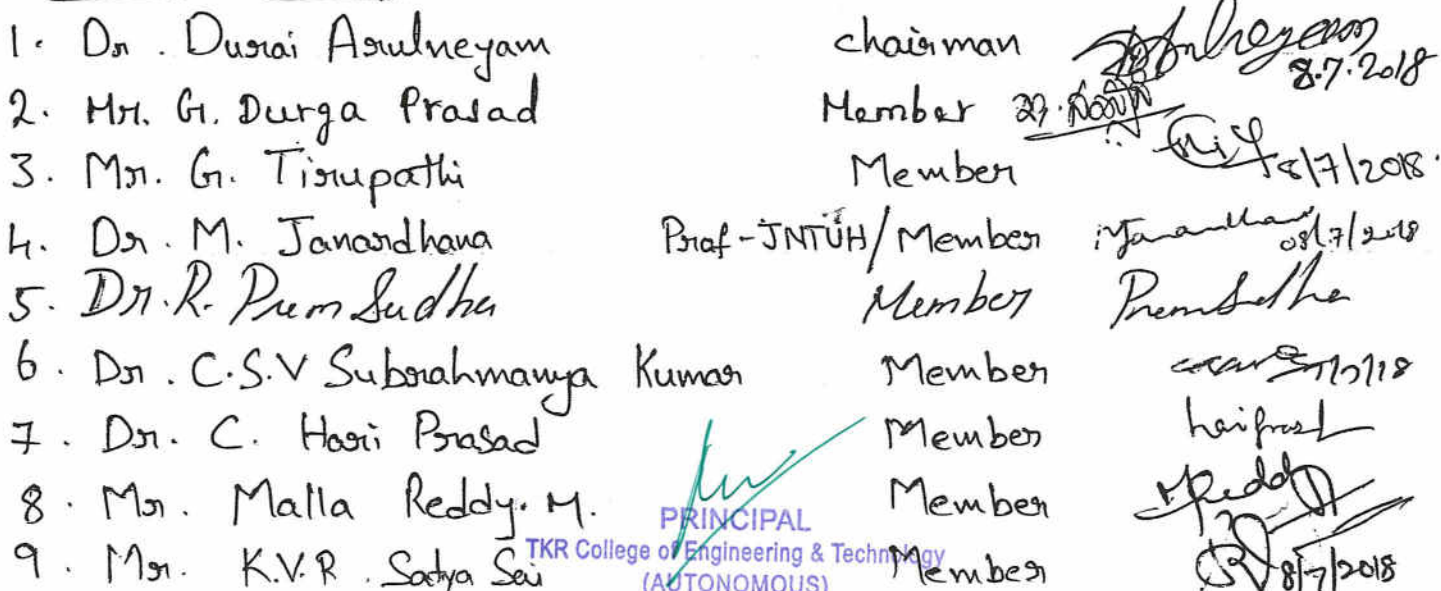 1. Dr. Durai Arulneyam chairman
8.7.2018
2. Mr. G. Durga Prasad Member
3. Mr. G. Tirupathi Member 8/7/2018.
4. Dr. M. Janardhana Prof-JNTUH/Member MJanardhana 08/7/2018
5. Dr. R. Prem Sudha Member PremSudha
6. Dr. C.S.V Subrahmanya Kumar Member
7. Dr. C. Hari Prasad Member hariprasad
8. Mr. Malla Reddy. M. Member MReddy
PRINCIPAL
TKR College of Engineering & Technology
9. Mr. K.V.R. Satya Sai Member 8/7/2018
(AUTONOMOUS)